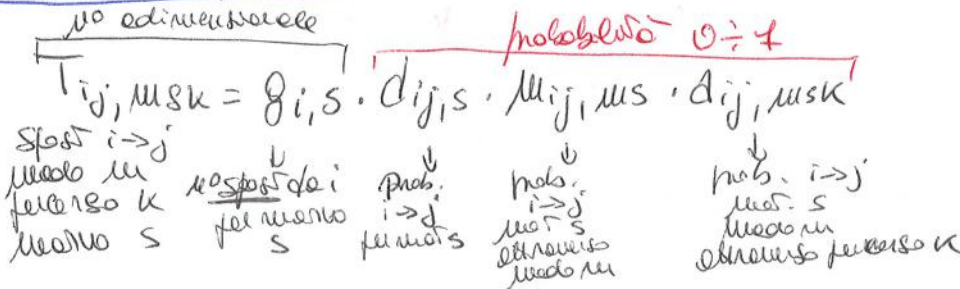 n° adimensionale
probabilità 0÷1
Tij,msk = gi,s · dij,s · mij,ms · aij,msk
spost i->j
modo m
percorso k
motivo s
n° spost da i
per motivo
s
prob.
i->j
per mot s
prob.
i->j
mot s
attraverso
modo m
prob. i->j
mot. s
modo m
attraverso percorso k